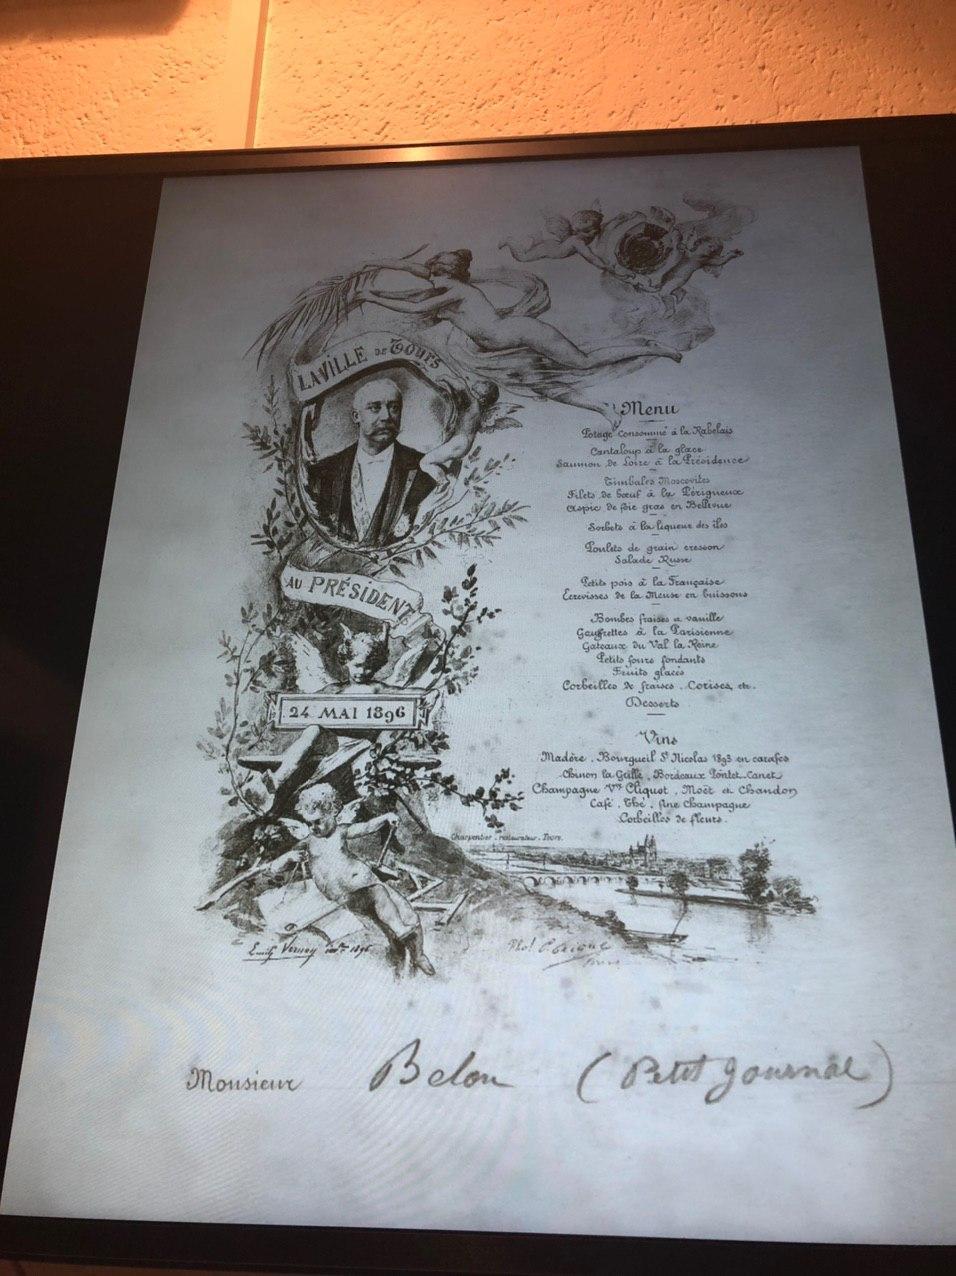 LA VILLE DE TOURS
AU PRÉSIDENT
24 MAI 1896
Menu
Potage consommé à la Rabelais
Cantaloup à la glace
Saumon de Loire à la Présidence
Timbales Moscovites
Filets de bœuf à la Périgueux
Aspic de foie gras en Bellevue
Sorbets à la liqueur des îles
Poulets de grain cresson
Salade Russe
Petits pois à la Française
Ecrevisses de la Meuse en buissons
Bombes fraises et vanille
Gauffrettes à la Parisienne
Gateaux du Val la Reine
Petits fours fondants
Fruits glacés
Corbeilles de fraises . Cerises, etc.
Desserts
Vins
Madère . Bourgueil St Nicolas 1893 en carafes
Chinon la Grille . Bordeaux Pontet-Canet
Champagne Vve Cliquot . Moët et Chandon
Café . Thé . fine Champagne
Corbeilles de fleurs .
Charpentier . restaurateur . Tours.
1896
Monsieur Belon (Petit Journal)